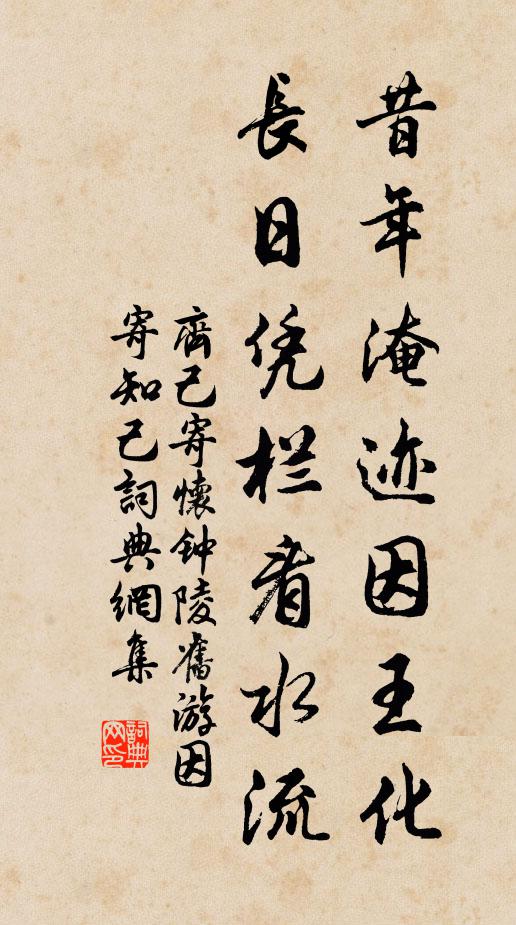 昔年淹迹因王化
長日凭栏看水流
齊己寄懷钟陵舊游因
寄知己詞典網集
詞典
网印